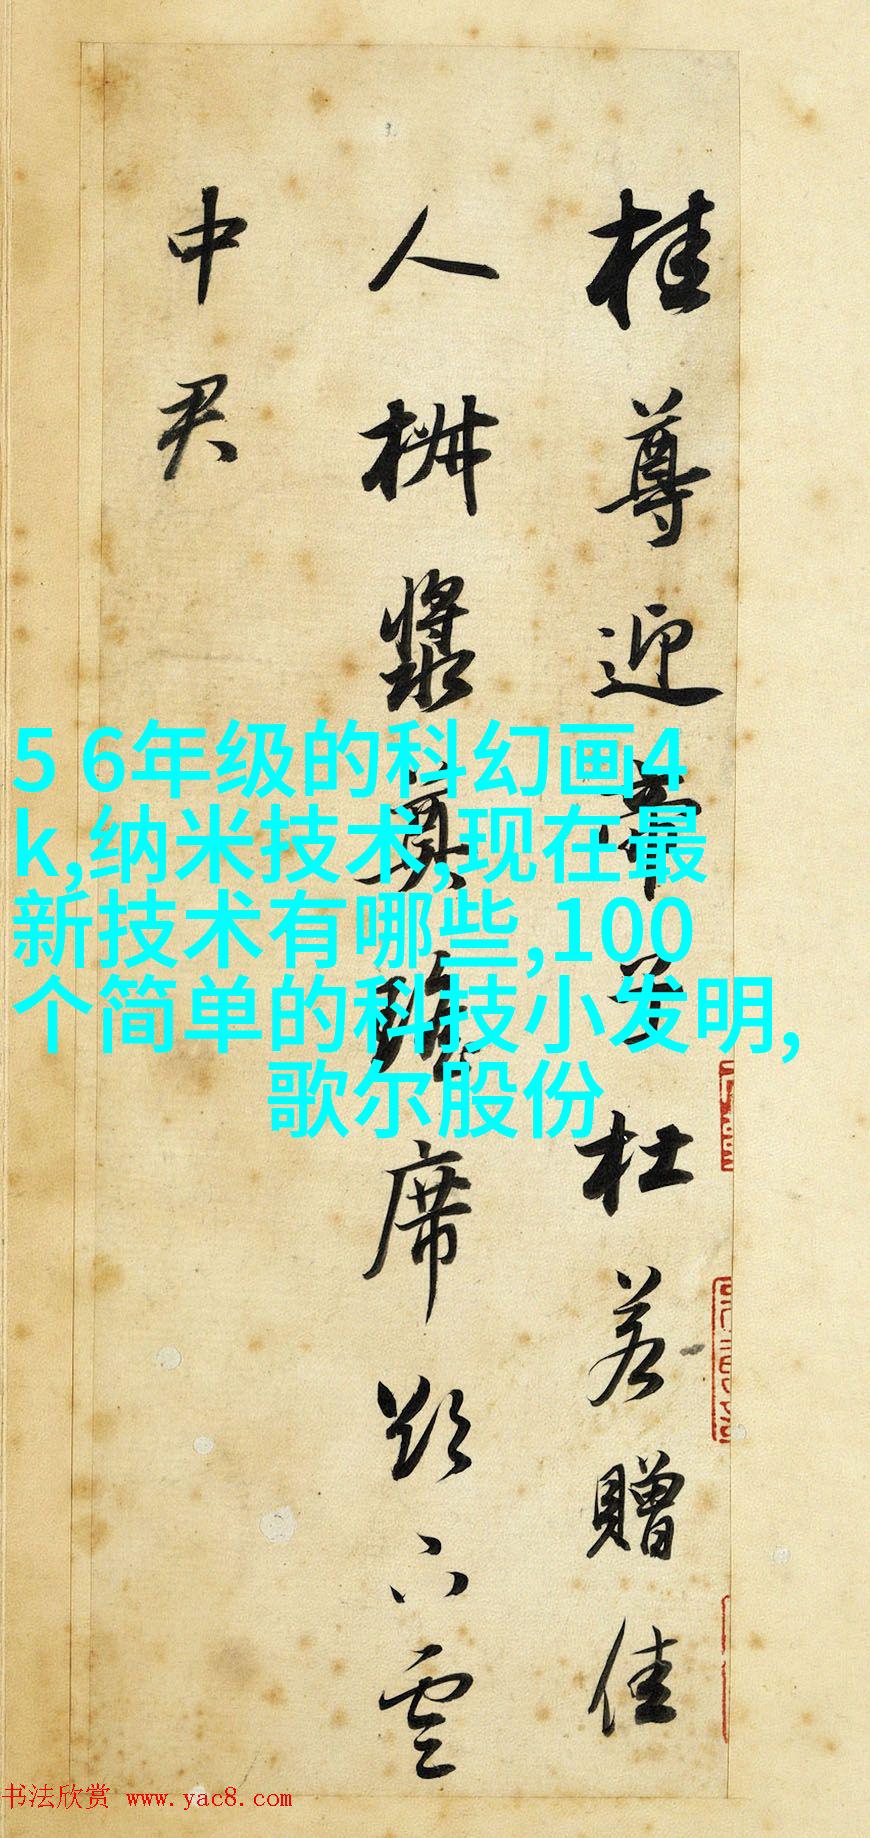 桂尊迎帝子杜若贈佳
人椒漿奠瑤席欲下雲
中君
5 6年级的科幻画4
k,纳米技术,现在最
新技术有哪些,100
个简单的科技小发明,
歌尔股份
书法欣赏 www.yac8.com